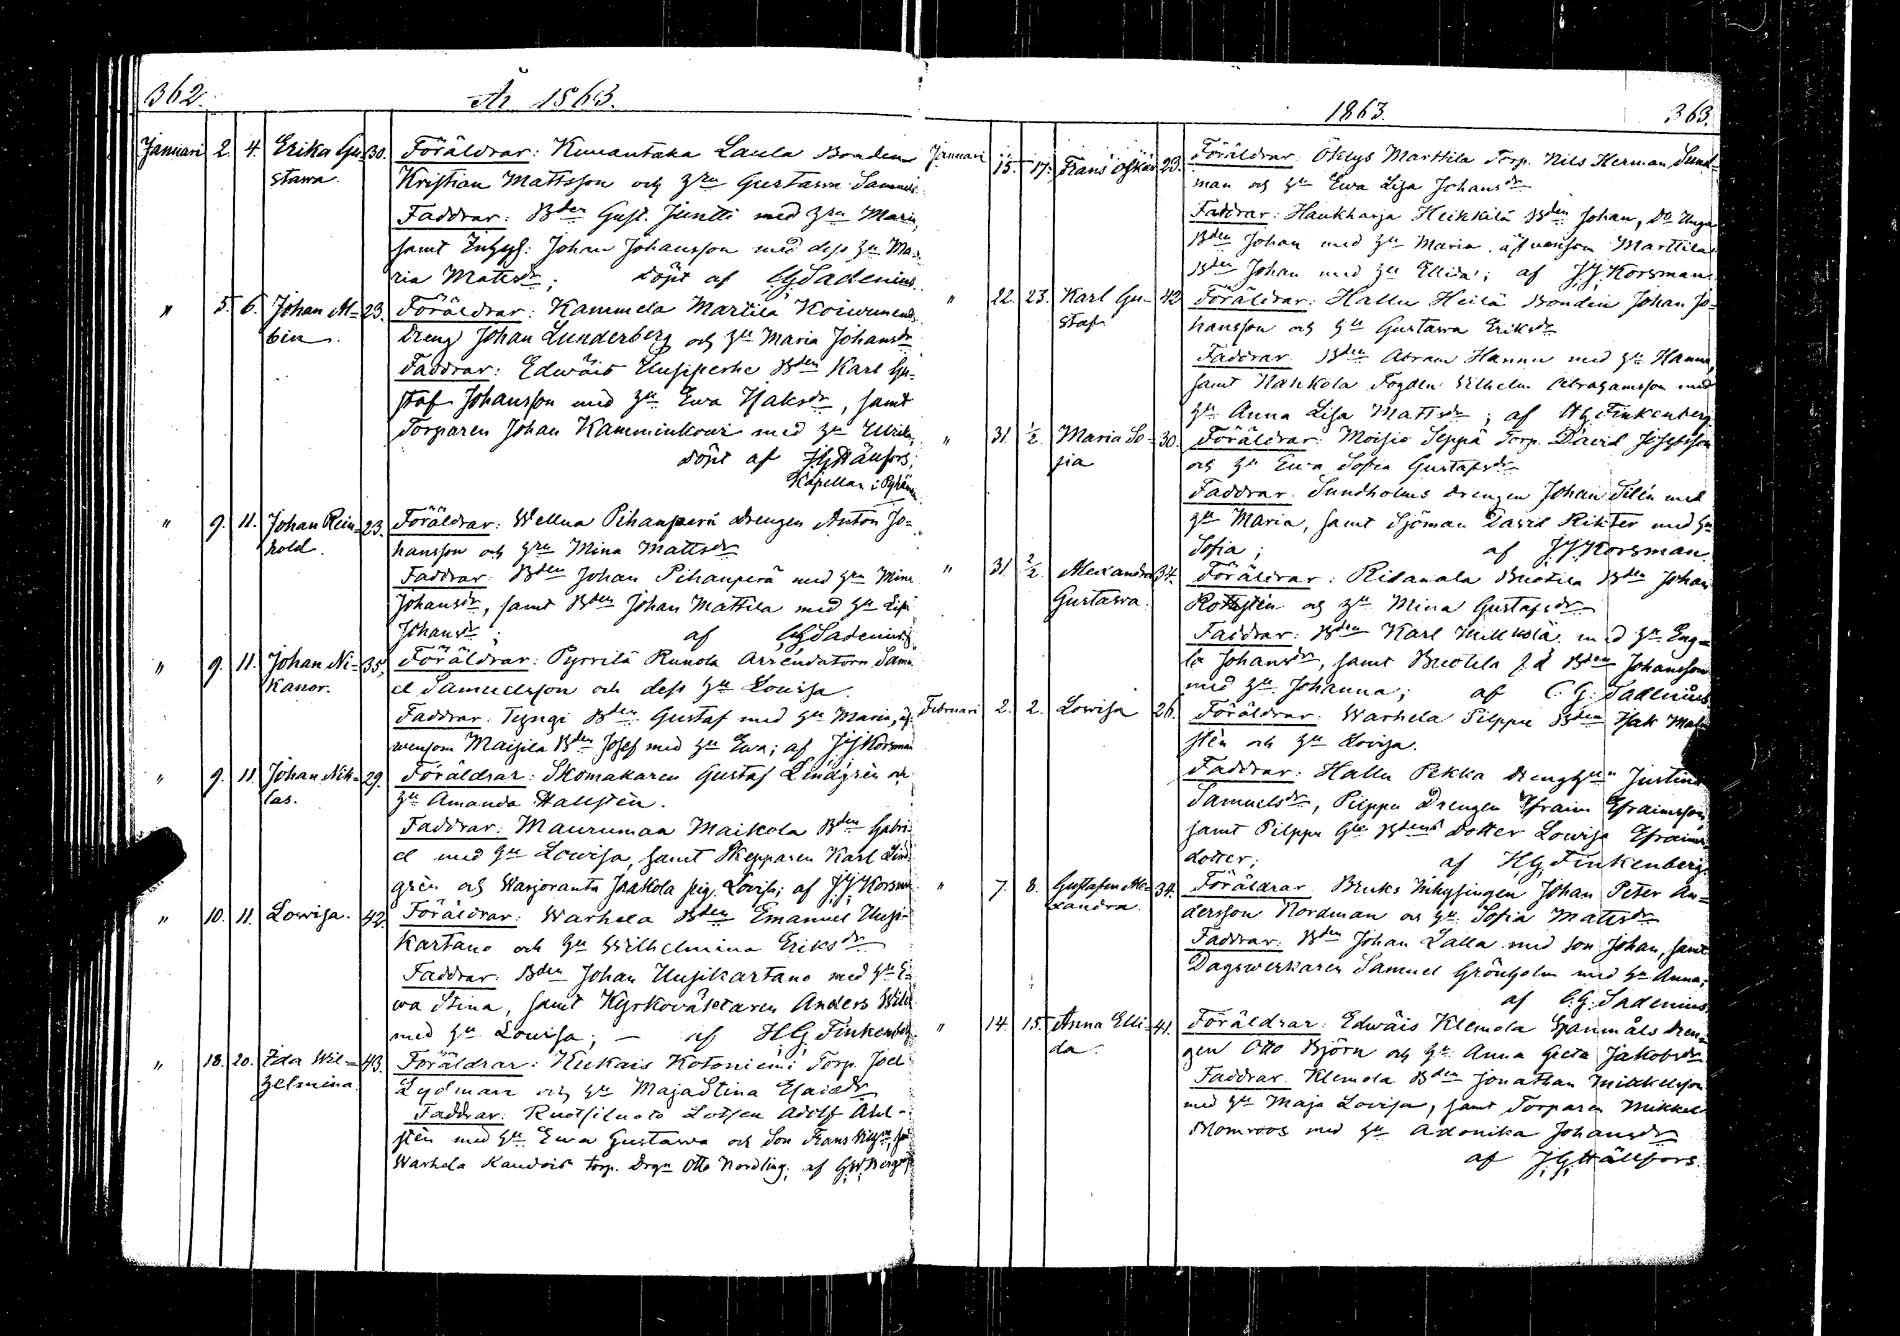 362.
År 1863.
Januari 2. 4. Erika Gu- 30. Föräldrar: Kunantaka Laula Bonden
stawa. Kristian Mattsson och Hru Gustawa Samuels
Faddrar: Bden Gust. Juntti med Hru Maria,
samt Johan Johansson med dess Hu Ma-
ria Mattsdr; döpt af CGSadenius.
" 5. 6. Johan Al- 23. Föräldrar: Kammela Marttila
bin. Dreng Johan Lunderberg och Hu Maria Johansdr
Faddrar: Edwäis Uusiperhe Bden Karl Gu-
staf Johansson med Hu Ewa Isaksdr, samt
Torparen Johan med Hu Ulrika,
döpt af JGHällfors,
Kapellan i Pyhäma
" 9. 11. Johan Rein- 23. Föräldrar: Wellua Pihanperä drengen Anton Jo-
hold. hansson och Hru Mina Mattsdr
Faddrar: Bden Johan Pihanperä med Hru Mina
Johansdr, samt Bden Johan Mattila med Hu Lisa
Johansdr; af CGSadenius
" 9. 11. Johan Ni- 35. Föräldrar: Pyrrilä Runola Arrendatorn Samu
kanor. el Samuelsson och dess Hu Lovisa.
Faddrar: Bden Gustaf med Hu Maria, äf-
wensom Maisila Bden Josef med Hu Ewa; af JJKorsman
" 9. 11. Johan Nik- 29. Föräldrar: Skomakaren Gustaf Lindgrén och
las. Hu Amanda Hallstén.
Faddrar: Maurumaa Maikola Bden Gabri-
el med Hu Lowisa, samt Skepparen Karl Lind
grén och Warjoranta Jaakola pig. Lovisa; af JJKorsman
" 10. 11. Lowisa. 42. Föräldrar: Warhela Bden Emanuel Uusi-
kartano och Hu Wilhelmina Eriksdr
Faddrar: Bden Johan Uusikartano med Hu E-
wa Stina, samt Kyrkoväktaren Anders
med Hu Lovisa; — af HGFinkenberg
" 18. 20. Ida Wil- 43. Föräldrar: Kukais Kotoniemi Torp. Joel
helmina. Lydman och Hu Maja Stina Esaiedr
Faddrar: Ruotsiluoto Lotsen Adolf Ahl-
stén med Hu Ewa Gustawa och Son Frans
Warhela Kaudois torp. Drgn Otto Nordling; af
1863. 363.
Januari 15. 17. Frans Oskar 23. Föräldrar: Öklys Marttila Torp. Nils Herman Sund-
man och Hu Ewa Lisa Johansdr
Faddrar: Haukharja Heikkilä Bden Johan, Do Unga
Bden Johan med Hu Maria, äfvensom Marttila
Bden Johan med Hu Ellida; af JJKorsman
" 22. 23. Karl Gu- 42. Föräldrar: Hallu Heilä Bonden Johan Jo-
staf hansson och Hu Gustawa Eriksdr
Faddrar: Bden Abram Hannu med Hu Hanna,
samt Hankola Fogden Wilhelm Abrahamsson med
Hu Anna Lisa Mattsdr; af HGFinkenberg
" 31. 1/2. Maria So- 30. Föräldrar: Moisio Seppä Torp. David Josefsson
fia och Hu Ewa Sofia Gustafsdr
Faddrar: Sundholms drengen Johan Silén med
Hu Maria, samt Sjöman David Rihter med Hu
Sofia; af JJKorsman
" 31. 2/2. Alexandra 34. Föräldrar: Ridanala Buotila Bden Johan
Gustawa. och Hu Mina Gustafsdr
Faddrar: Bden Karl med Hu Eng-
la Johansdr, samt Buotila f.d. Bden Johansson
med Hu Johanna; af C.G. Sadenius
Februari 2. 2. Lowisa 26. Föräldrar: Warhela Pilppu Bden Isak Malm
stén och Hu Lovisa.
Faddrar: Hallu Pekka drengHun Justina
Samuelsdr, Pilppu Drengen Efraim Efraimsson,
samt Pilppu Gla Bdens dotter Lowisa Efraims
dotter; af H.G.Finkenberg
" 7. 8. Gustafva Ale- 34. Föräldrar: Bruks Inhysingen Johan Peter An-
xandra. dersson Nordman och Hu Sofia Mattsdr
Faddrar: Bden Johan Lalla med son Johan, samt
Dagswerkaren Samuel Grönholm med Hu Anna;
af C.G. Sadenius
" 14. 15. Anna Elli- 41. Föräldrar: Edwäis Klemola Spanmåls dren-
da. gen Otto Björn och Hu Anna Greta Jakobsdr
Faddrar: Klemola Bden Jonathan Mikkelsson
med Hu Maja Lovisa, samt Torparen Mikkel
Blomroos med Hu Adonika Johansdr
af J.G.Hällfors.